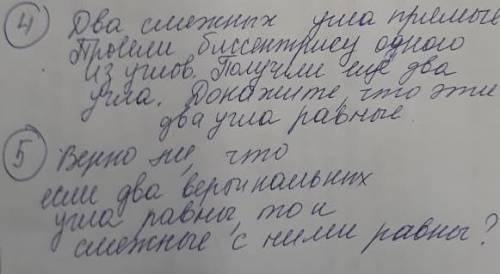 ④ Два смежных угла прямые.
Провели биссектрису одного
из углов. Получили ещё два
угла. Докажите, что эти
два угла равные.
⑤ Верно ли, что
если два вертикальных
угла равны, то и
смежные с ними равны?